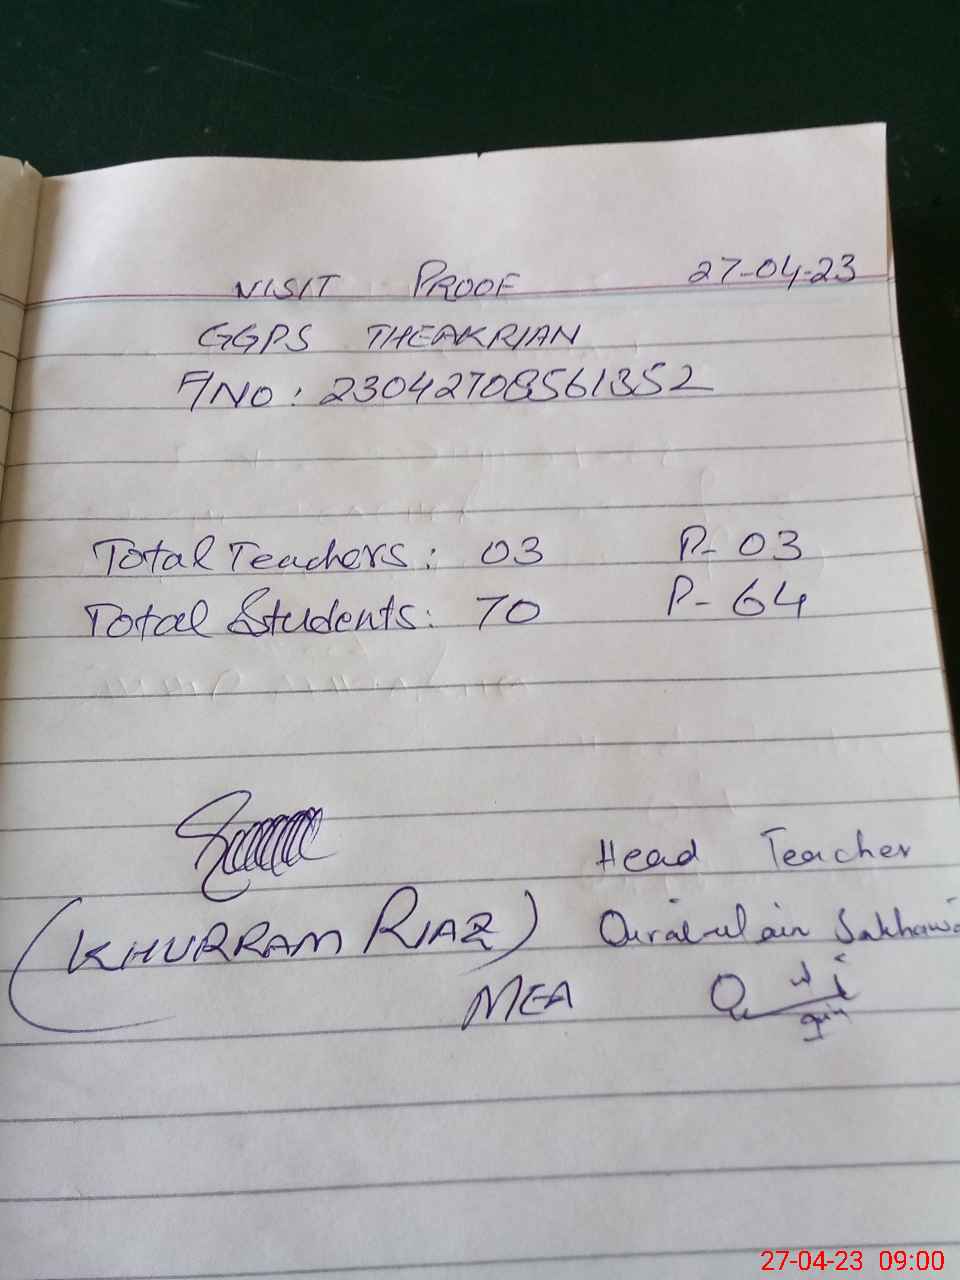 VISIT PROOF 27-04-23
GGPS THEAKRIAN
F/NO: 23042708561352
Total Teachers: 03 P- 03
Total Students: 70 P- 64
Head Teacher
(KHURRAM RIAZ)
MEA
27-04-23 09:00